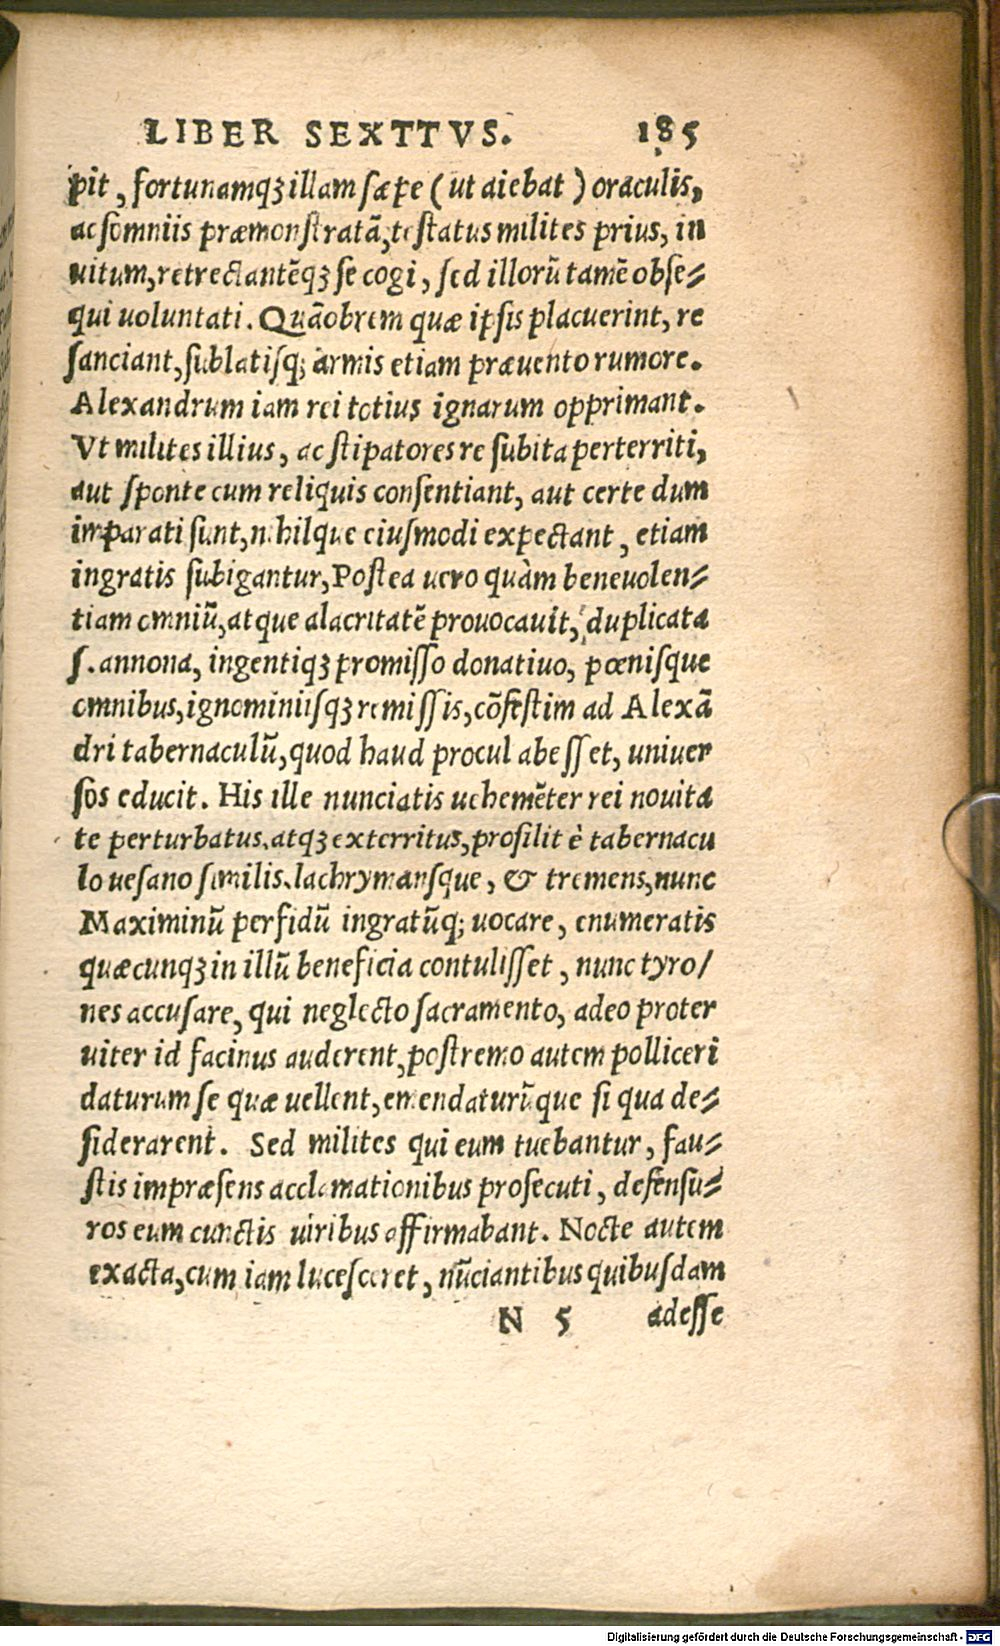 LIBER SEXTTVS. 185
pit, fortunamqꝫ illam sæpe (ut aiebat) oraculis,
ac somniis præmonstratã, testatus milites prius, in
uitum, retrectantẽqꝫ se cogi, sed illorũ tamẽ obse⸗
qui uoluntati. Quãobrem quæ ipsis placuerint, re
sanciant, sublatisq; armis etiam præuento rumore.
Alexandrum iam rei totius ignarum opprimant.
Vt milites illius, ac stipatores re subita perterriti,
aut sponte cum reliquis consentiant, aut certe dum
imparati sunt, nihilque eiusmodi expectant, etiam
ingratis subigantur, Postea uero quàm beneuolen⸗
tiam omniũ, atque alacritatẽ prouocauit, duplicata
s. annona, ingentiqꝫ promisso donatiuo, pœnisque
omnibus, ignominiisqꝫ remissis, cõfestim ad Alexã
dri tabernaculũ, quod haud procul abesset, uniuer
sos educit. His ille nunciatis uehemẽter rei nouita
te perturbatus, atqꝫ exterritus, prosilit è tabernacu
lo uesano similis, lachrymansque, & tremens, nunc
Maximinũ perfidũ ingratũq; uocare, enumeratis
quæcunqꝫ in illũ beneficia contulisset, nunc tyro/
nes accusare, qui neglecto sacramento, adeo proter
uiter id facinus auderent, postremo autem polliceri
daturum se quæ uellent, emendaturũque si qua de⸗
siderarent. Sed milites qui eum tuebantur, fau⸗
stis impræsens acclamationibus prosecuti, defensu⸗
ros eum cunctis uiribus affirmabant. Nocte autem
exacta, cum iam lucesceret, nũciantibus quibusdam
N 5 adesse
Digitalisierung gefördert durch die Deutsche Forschungsgemeinschaft - DFG